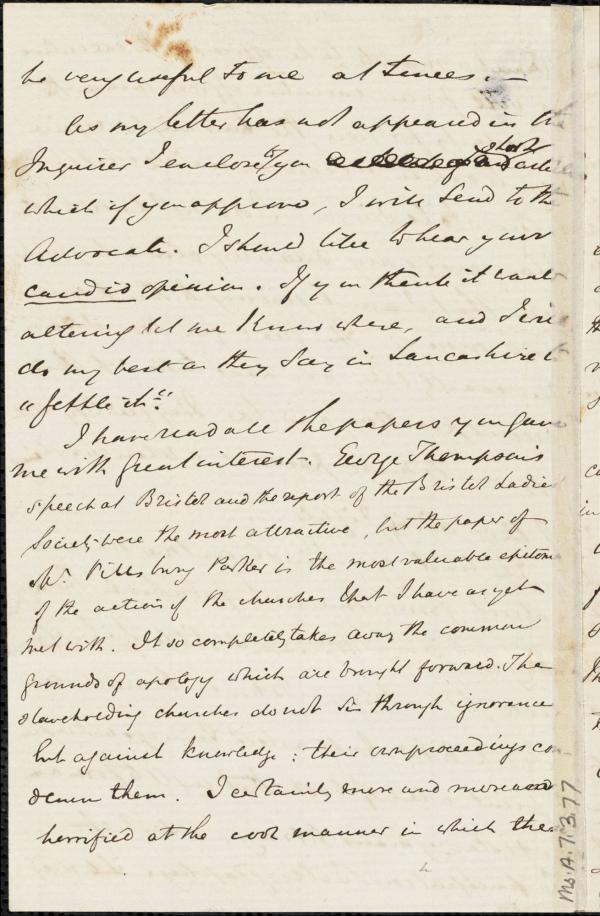 be very useful to me at times. —
As my letter has not appeared in the
Inquirer I enclose to you a short
which if you approve, I will send to the
Advocate. I should like to hear your
candid opinion. If you think it wants
altering let me know where, and I will
do my best as they say in Lancashire to
"fettle it."
I have read all the papers you gave
me with great interest. George Thompson's
speech at Bristol and the report of the Bristol Ladies
Society were the most attractive, but the paper of
Mr. Pillsbury Parker is the most valuable epitome
of the action of the churches that I have as yet
met with. It so completely takes away the common
grounds of apology which are brought forward. The
slaveholding churches do not sin through ignorance
but against knowledge; their own proceedings con-
demn them. I certainly more and more am
horrified at the cool manner in which the
Ms. A. 7. 3. 77